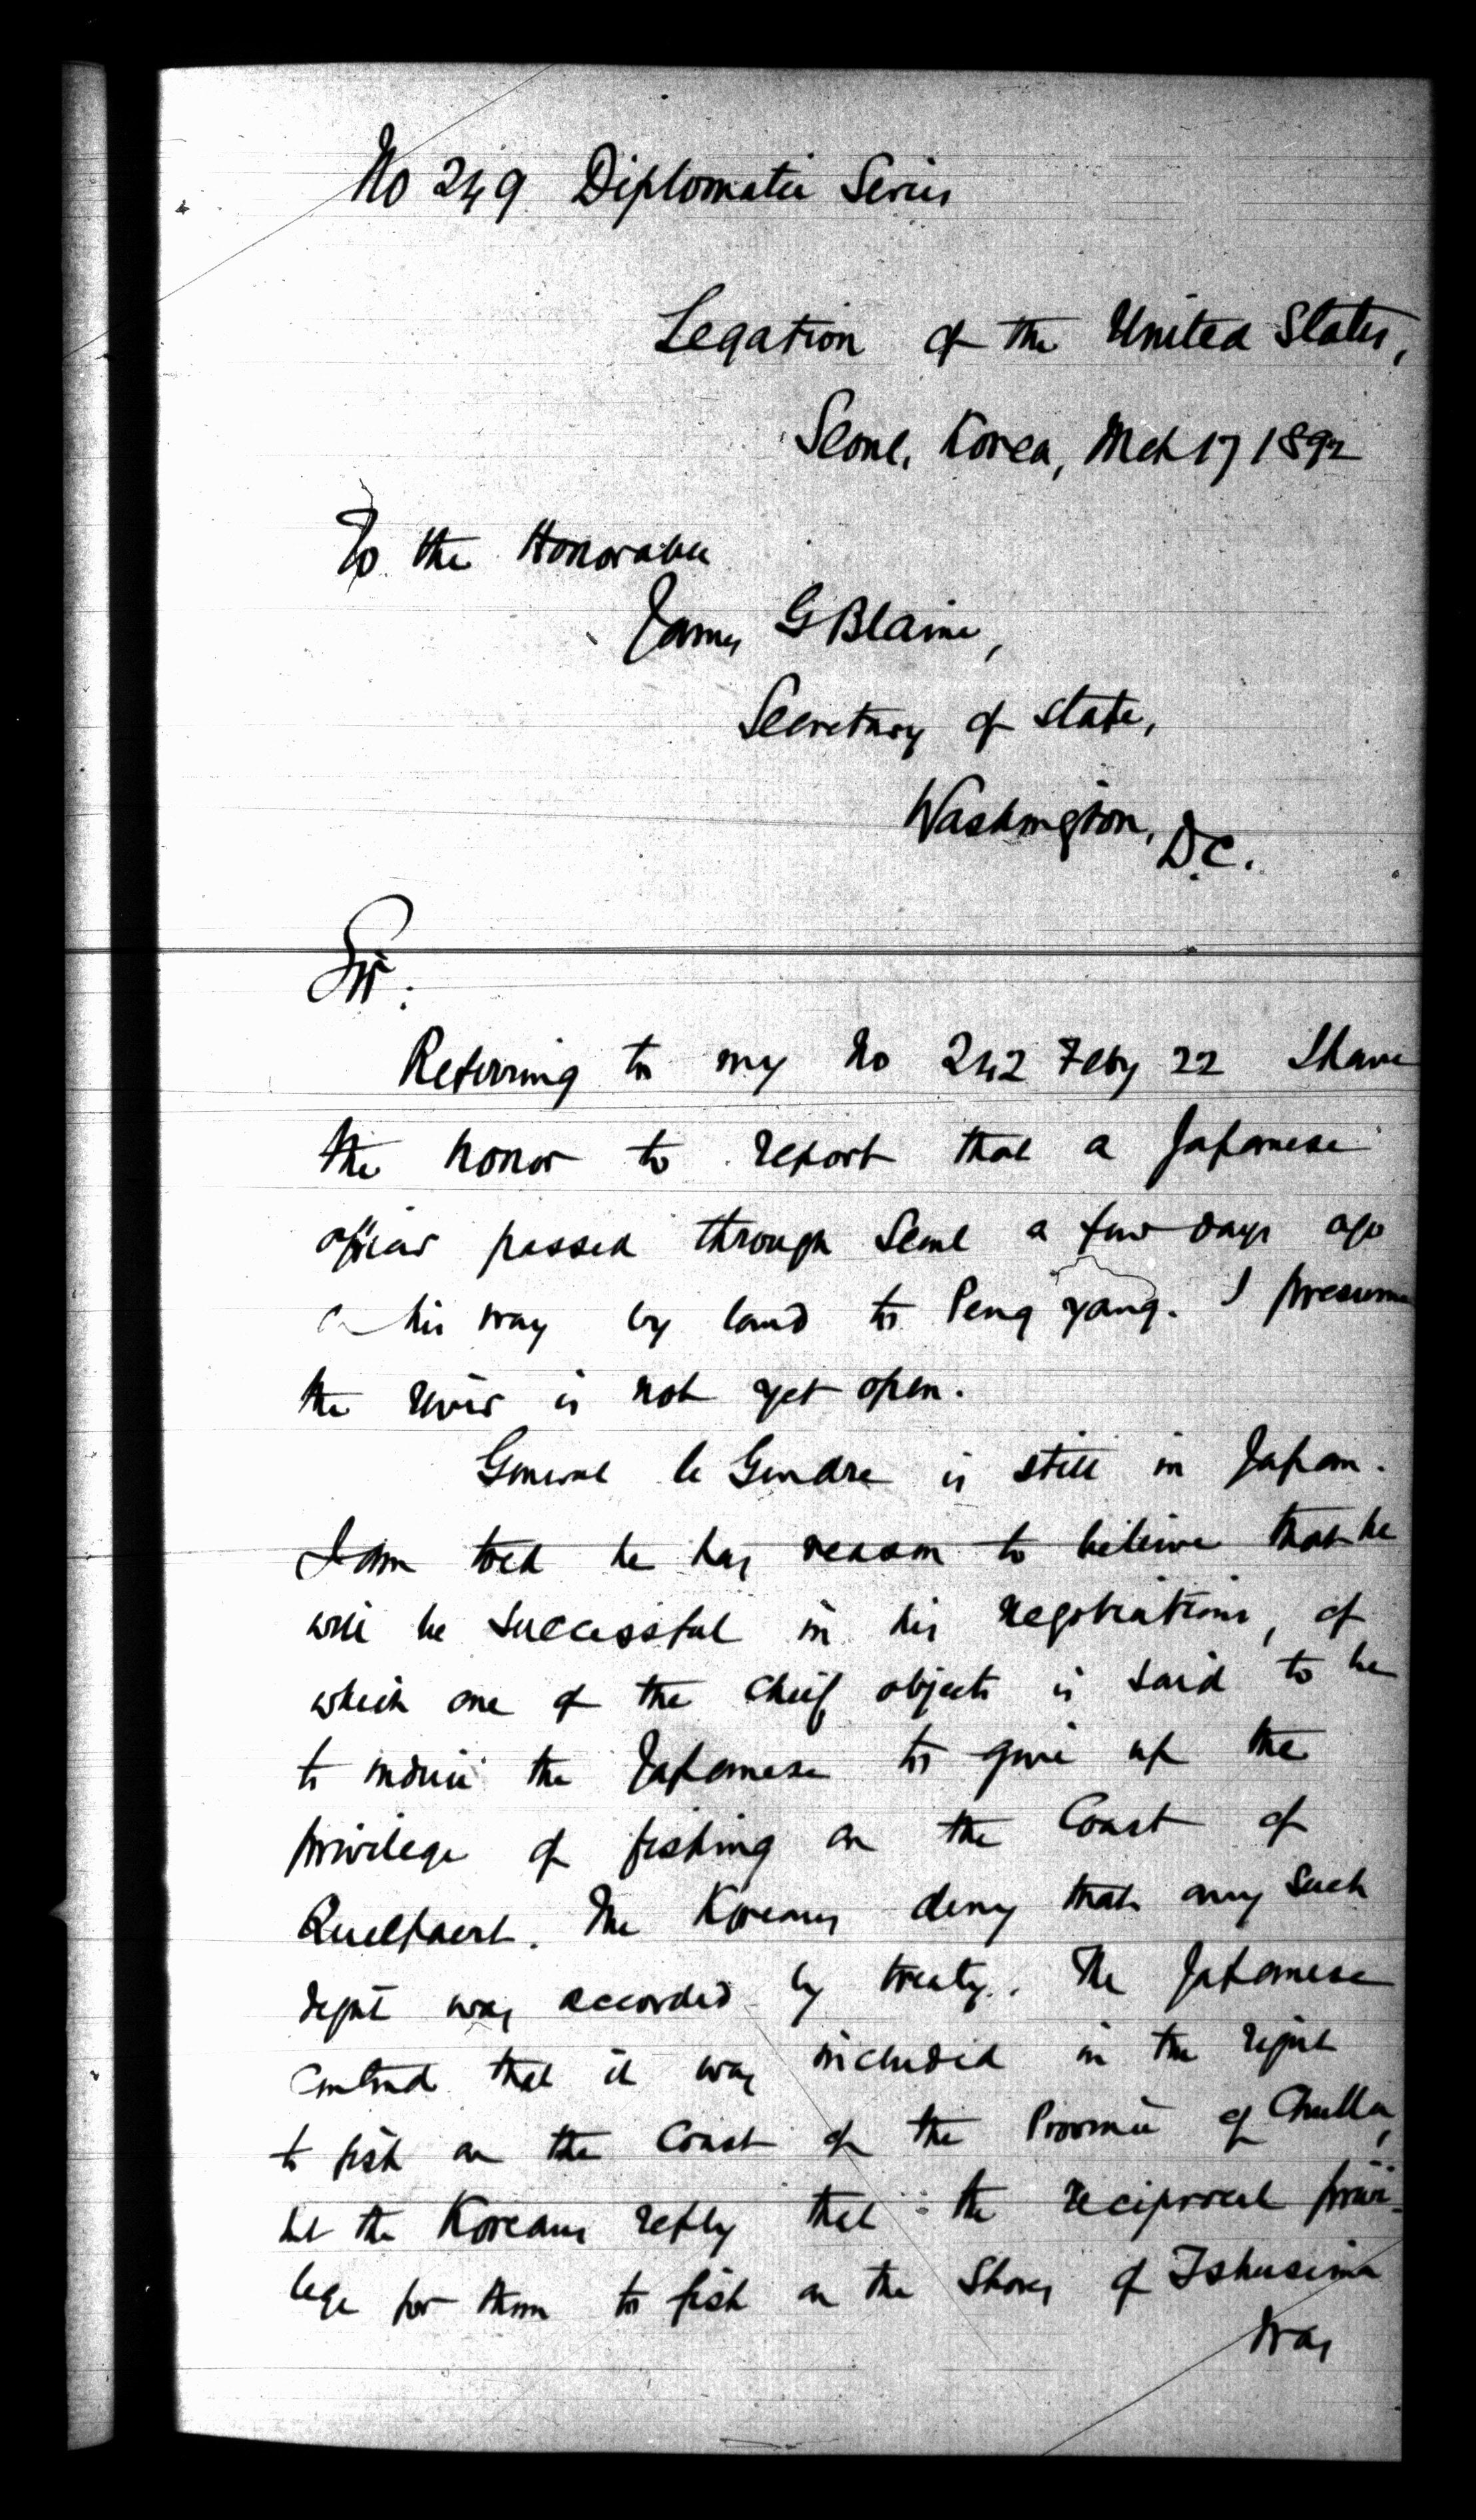 No 249 Diplomatic Series
Legation of the United States,
Seoul, Korea, Mch 17 1892
To the Honorable
James G Blaine,
Secretary of State,
Washington, D.C.
Sir:
Referring to my No 242 Feby 22 I have
the honor to report that a Japanese
officer passed through Seoul a few days ago
on his way by land to Peng yang. I presume
the river is not yet open.
General le Gendre is still in Japan.
I am told he has reason to believe that he
will be successful in his negotiations, of
which one of the chief objects is said to be
to induce the Japanese to give up the
privilege of fishing on the Coast of
Quelpaert. The Koreans deny that any such
right was accorded by treaty. The Japanese
contend that it was included in the right
to fish on the Coast of the Province of Chulla,
but the Koreans reply that the reciprocal privi-
lege for them to fish on the Shores of Tshusima
was